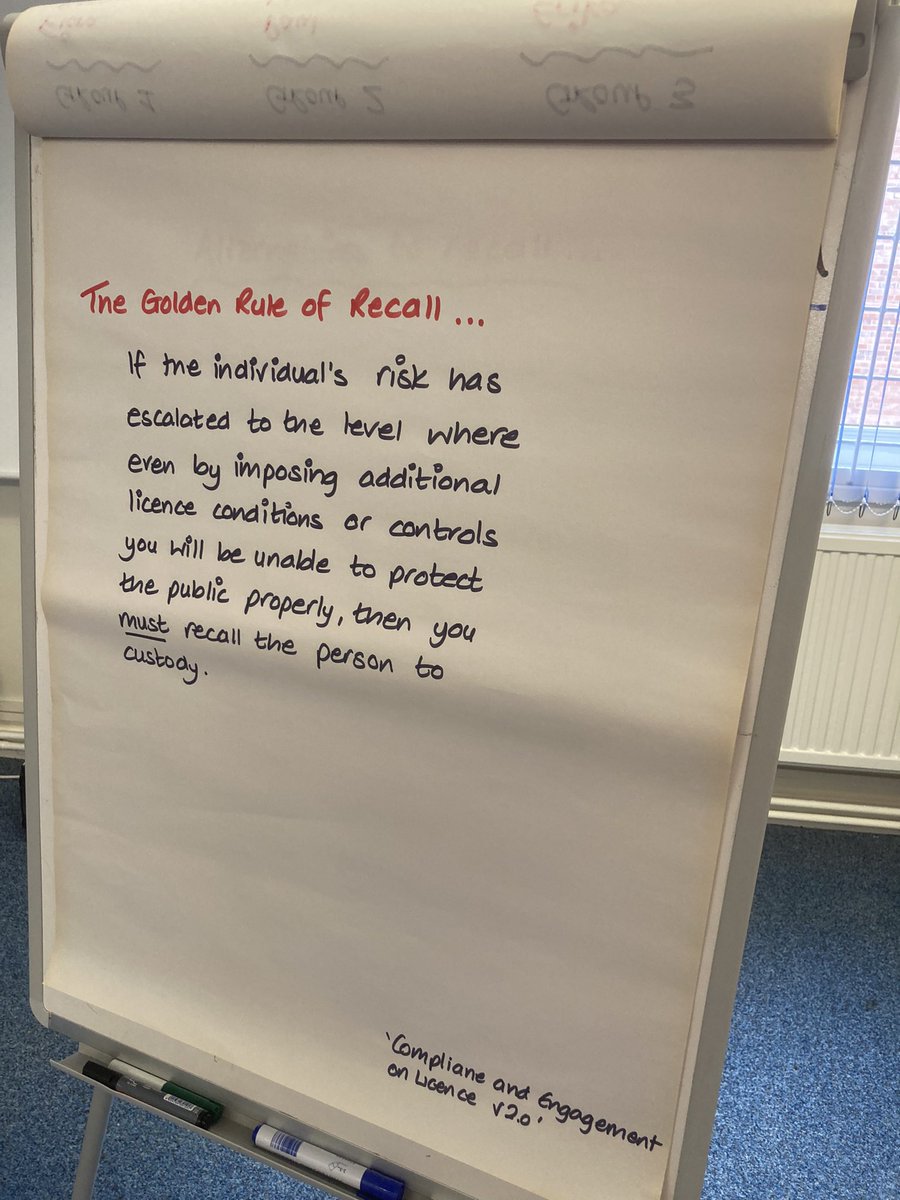 Paul
Erika
Group 1
Group 2
Group 3
The Golden Rule of Recall ...
If the individual's risk has
escalated to the level where
even by imposing additional
licence conditions or controls
you will be unable to protect
the public properly, then you
must recall the person to
custody.
'Compliane and Engagement
on Licence V2.0'